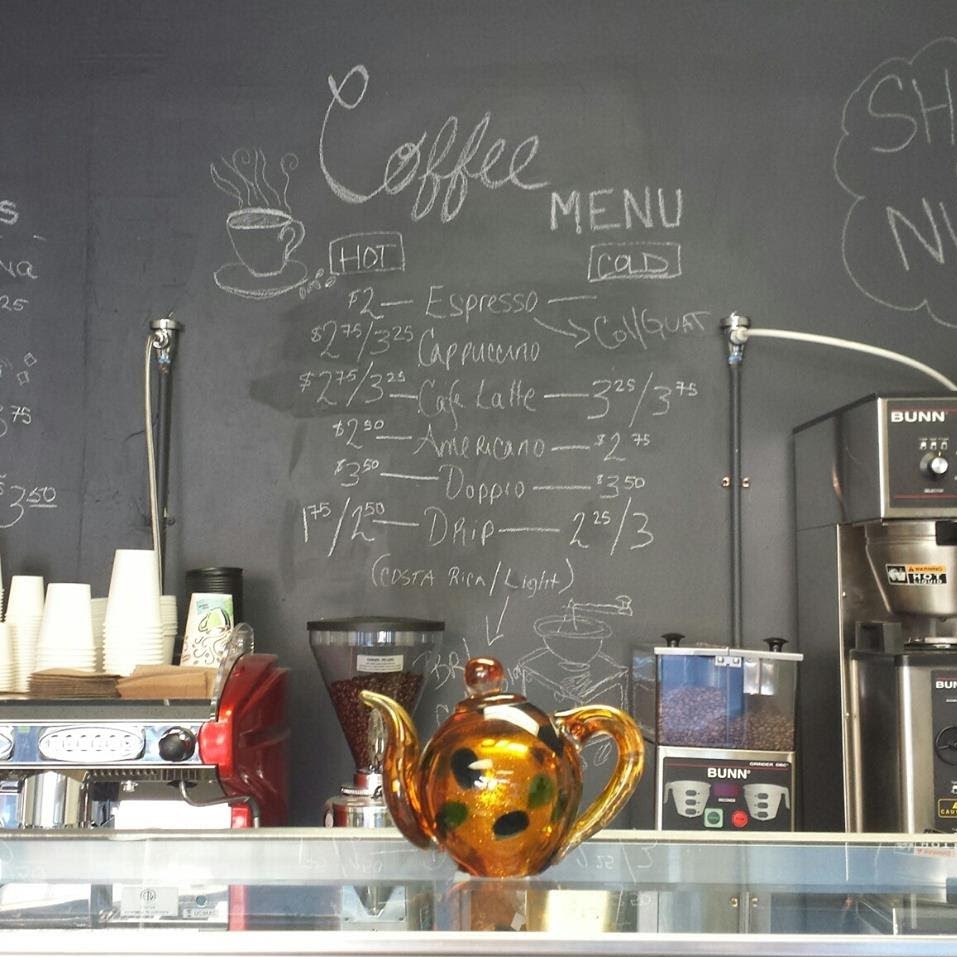 Coffee
MENU
HOT COLD
$2 — Espresso —
Col/GUAT
$2 75/3 25 Cappuccino
$2 75/3 25 — Cafe Latte — 3 25/3 75
$2 50 — Americano — $2 75
$3 50 — Doppio — $3 50
1 75/2 50 — DRip — 2 25/3
(COSTA Rica/Light)
SH
NI
S
na
25
75
$3.50
BUNN
HOT
BUNN
GRINDER
BUNN